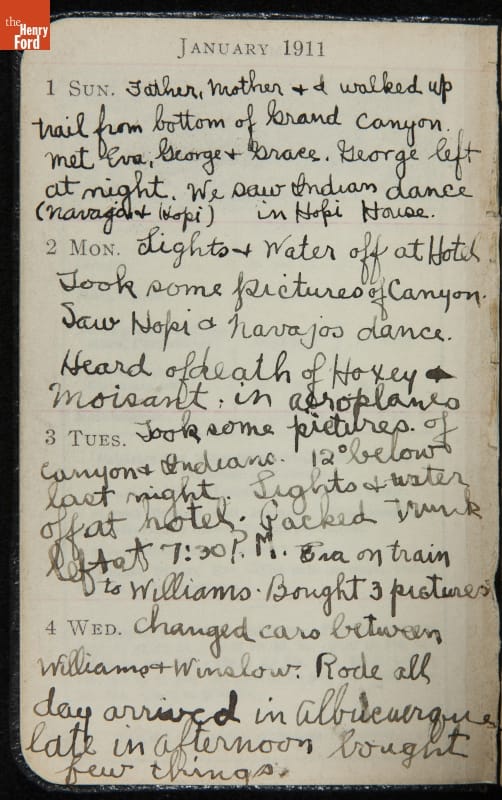 the
Henry
Ford
JANUARY 1911
1 SUN. Father, Mother + I walked up
trail from bottom of Grand Canyon.
met Eva, George + Grace. George left
at night. We saw Indian dance
(Navajo + Hopi) in Hopi House.
2 MON. Lights + Water off at Hotel
Took some pictures of Canyon.
Saw Hopi & Navajos dance.
Heard of death of Hoxey +
Moisant. in aeroplanes
3 TUES. Took some pictures. of
Canyon + Indians. 12° below
last night. Lights + water
off at hotel. Packed Trunk
left at 7:30 P.M. Eva on train
to Williams. Bought 3 pictures
4 WED. Changed cars between
Williams + Winslow. Rode all
day arrived in Albucuerque
late in afternoon bought
few things.